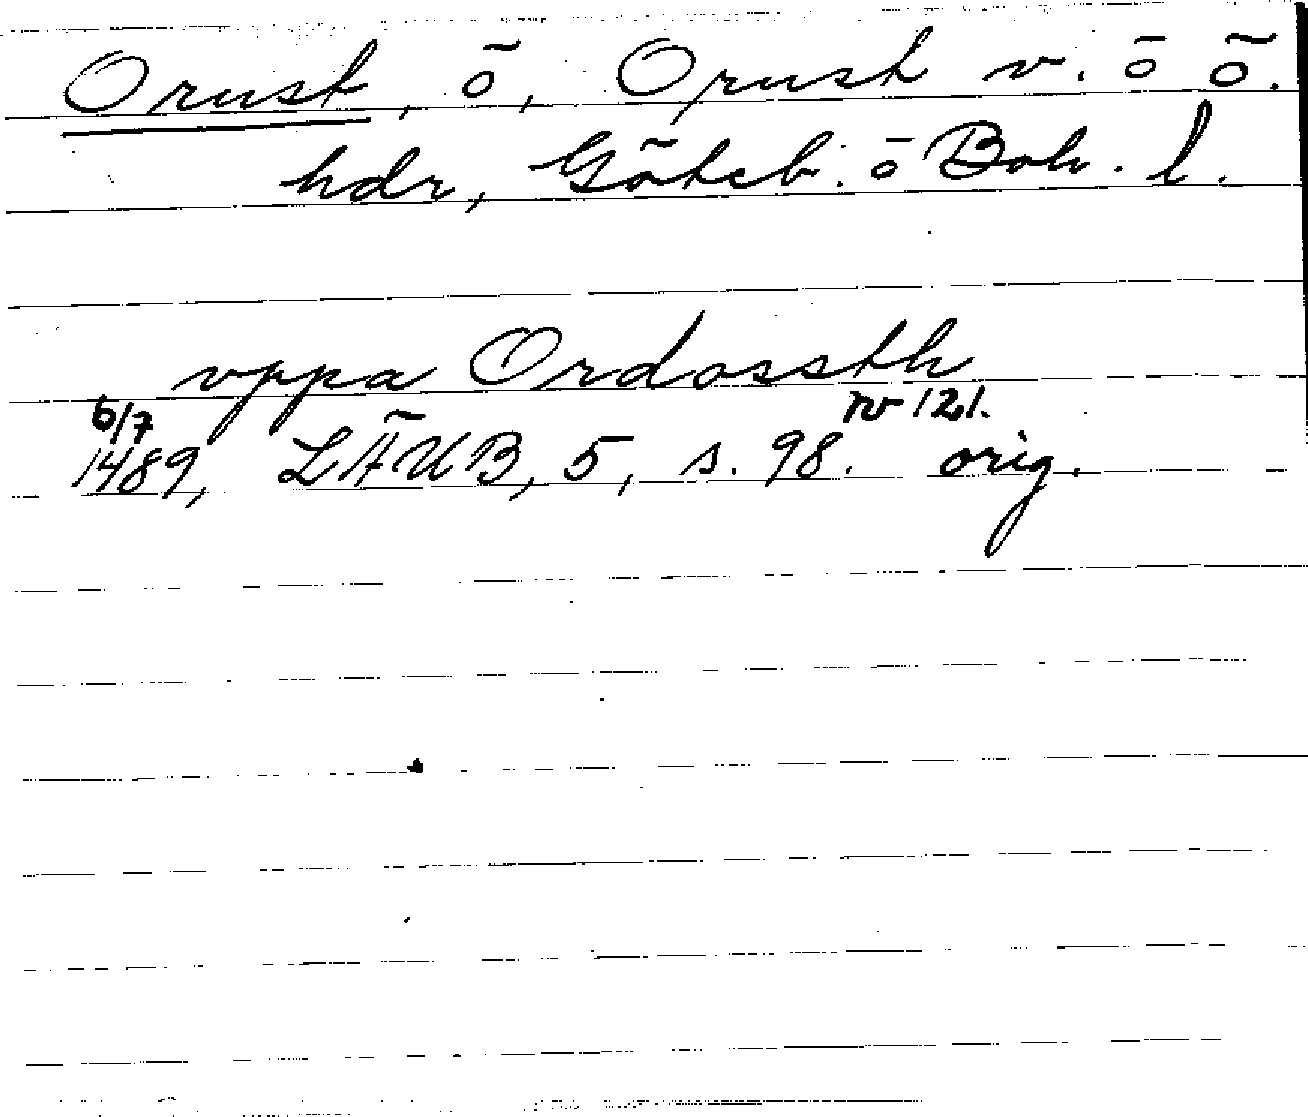 Orust, ö, Orust v. o ö.
hdr, Göteb. o Boh. l.
vppa Ordossth
6/7 nr 121.
1489, LÄUB, 5, s. 98. orig.